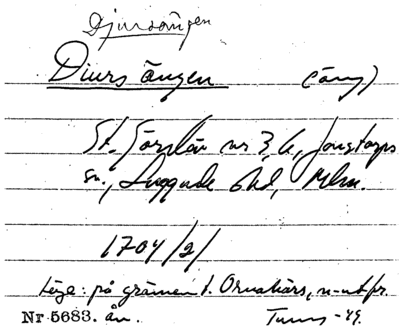 Djursängen
Diurs ängen (äng)
St. Görslöv nr 3, 6, Jonstorps
sn., Luggude hd, Mlm.
1704/2/
Läge: på gränsen t. Ornakärs, n-ut fr.
Nr 5683. ån. Tuns -49.